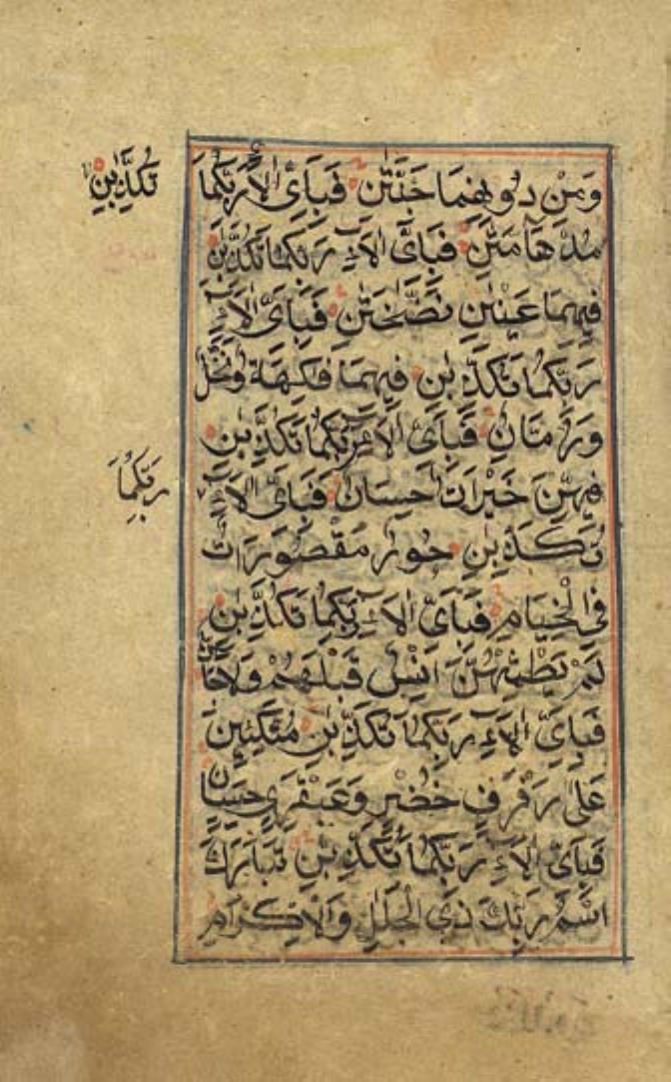 وَمِنْ دُونِهِمَا جَنَّتٰنِ فَبِاَىِّ اٰلَاۤءِ رَبِّكُمَا
تُكَذِّبٰنِ
مُدْهَاۤمَّتٰنِ فَبِاَىِّ اٰلَاۤءِ رَبِّكُمَا تُكَذِّبٰنِ
فِيهِمَا عَيْنٰنِ نَضَّاخَتٰنِ فَبِاَىِّ اٰلَاۤءِ
رَبِّكُمَا تُكَذِّبٰنِ فِيهِمَا فَاكِهَةٌ وَنَخْلٌ
وَرُمَّانٌ فَبِاَىِّ اٰلَاۤءِ رَبِّكُمَا تُكَذِّبٰنِ
فِيهِنَّ خَيْرَاتٌ حِسَانٌ فَبِاَىِّ اٰلَاۤءِ
رَبِّكُمَا
تُكَذِّبٰنِ حُورٌ مَقْصُورَاتٌ
فِى الْخِيَامِ فَبِاَىِّ اٰلَاۤءِ رَبِّكُمَا تُكَذِّبٰنِ
لَمْ يَطْمِثْهُنَّ اِنْسٌ قَبْلَهُمْ وَلَا جَاۤنٌّ
فَبِاَىِّ اٰلَاۤءِ رَبِّكُمَا تُكَذِّبٰنِ مُتَّكِئِينَ
عَلٰى رَفْرَفٍ خُضْرٍ وَعَبْقَرِىٍّ حِسَانٍ
فَبِاَىِّ اٰلَاۤءِ رَبِّكُمَا تُكَذِّبٰنِ تَبَارَكَ
اسْمُ رَبِّكَ ذِى الْجَلٰلِ وَالْاِكْرَامِ